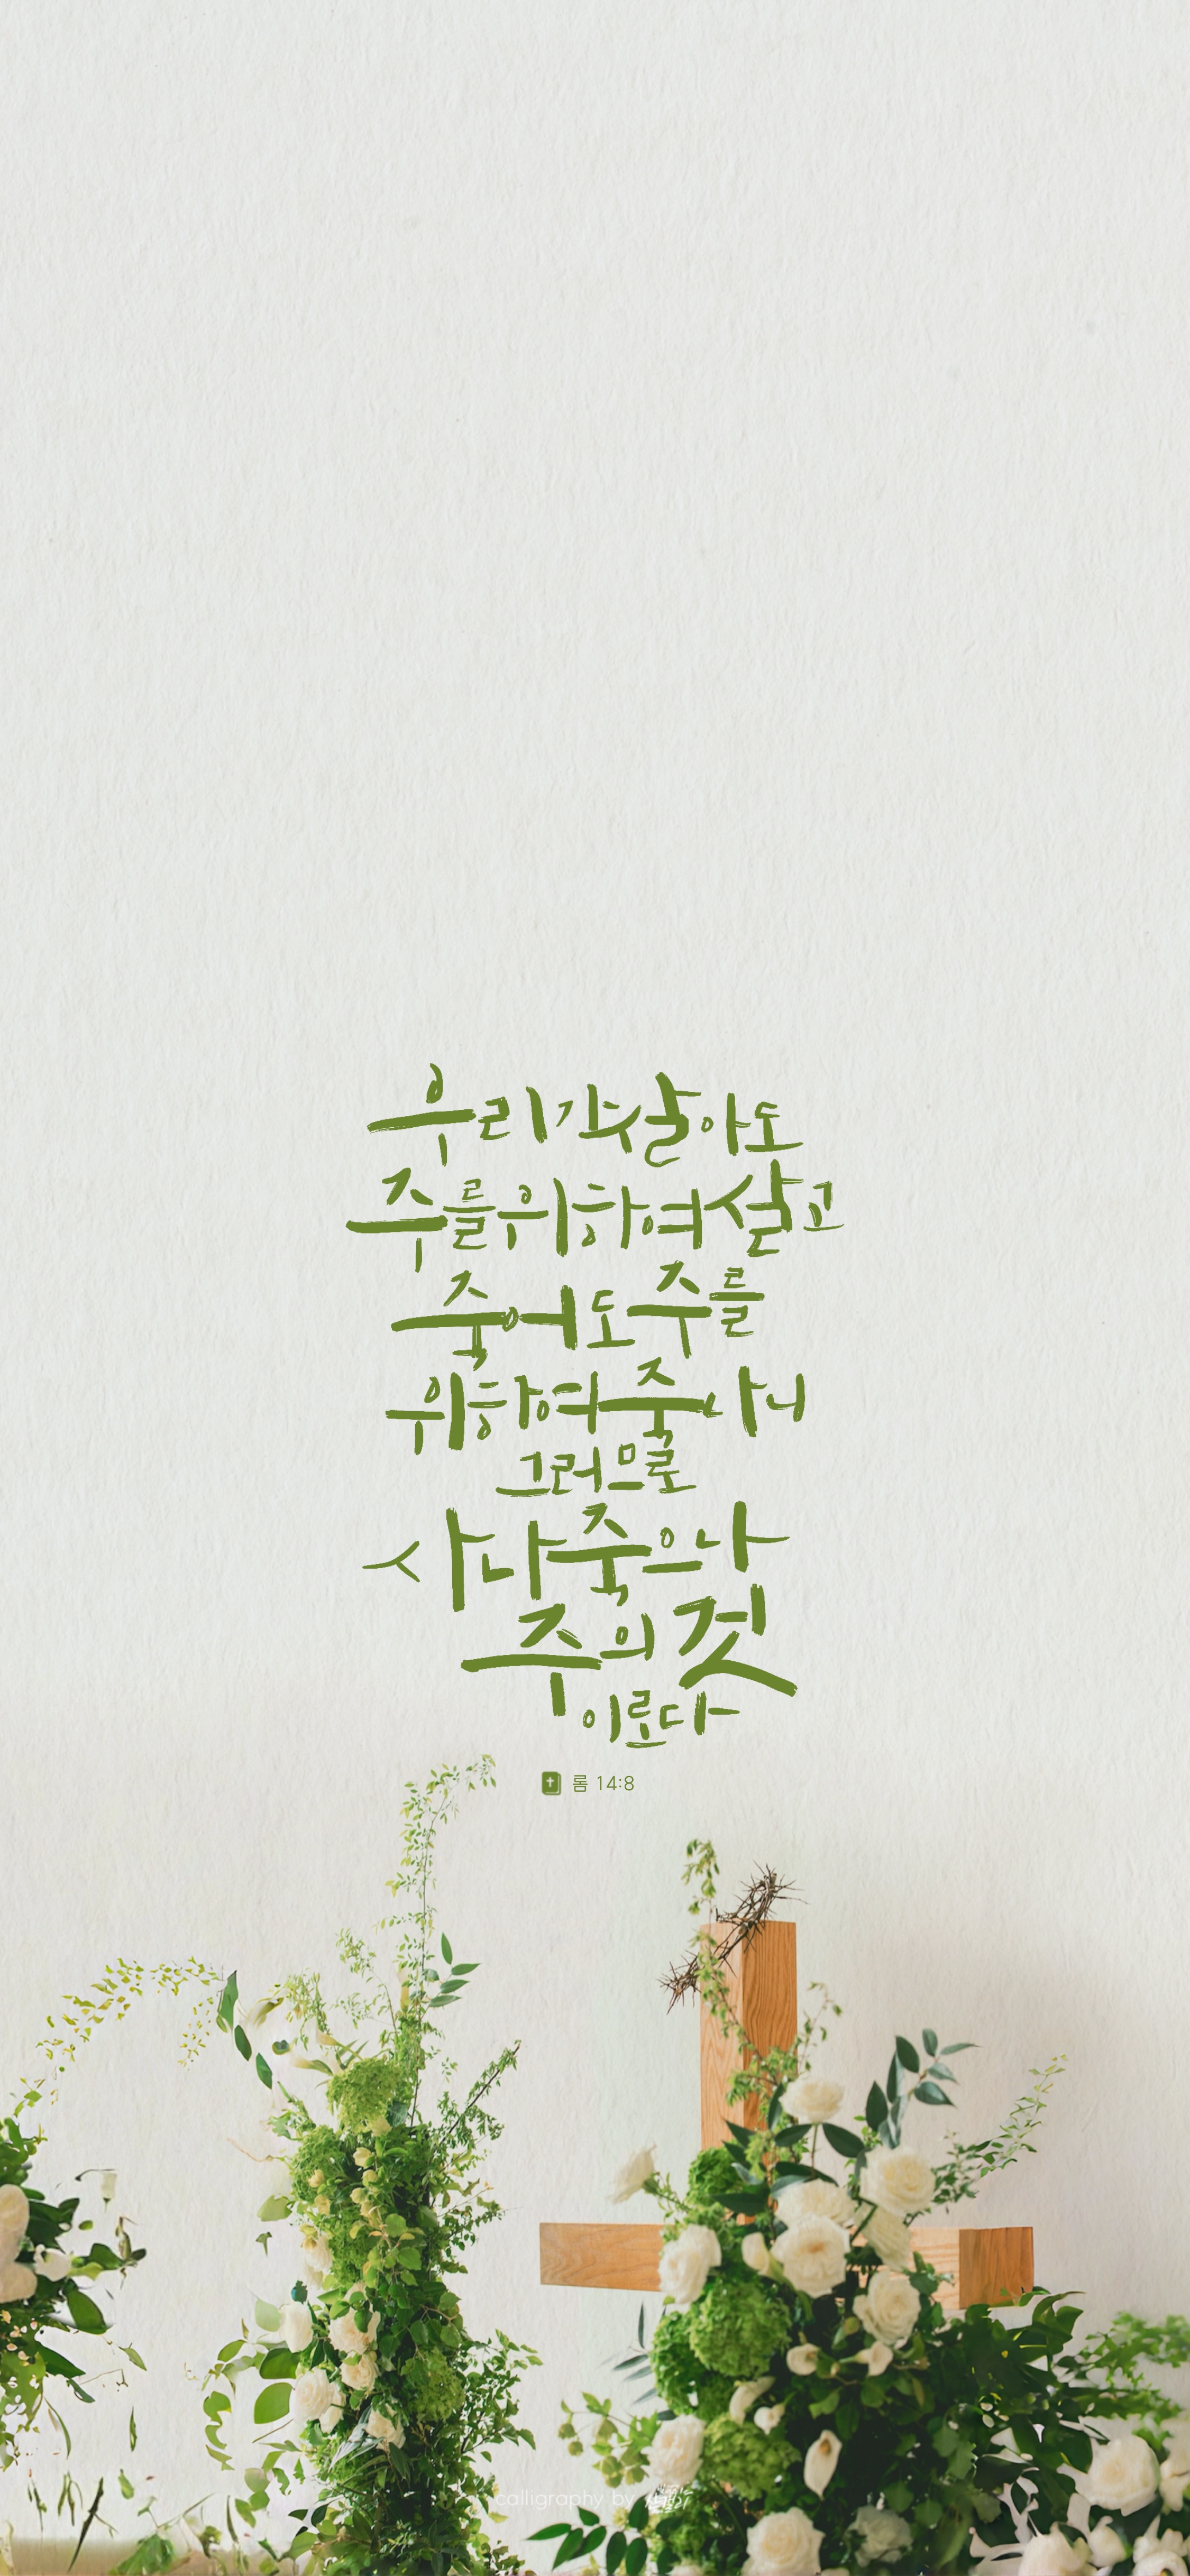 우리가 살아도
주를 위하여 살고
죽어도 주를
위하여 죽나니
그러므로
사나 죽으나
주의 것
이로다
롬 14:8
calligraphy by